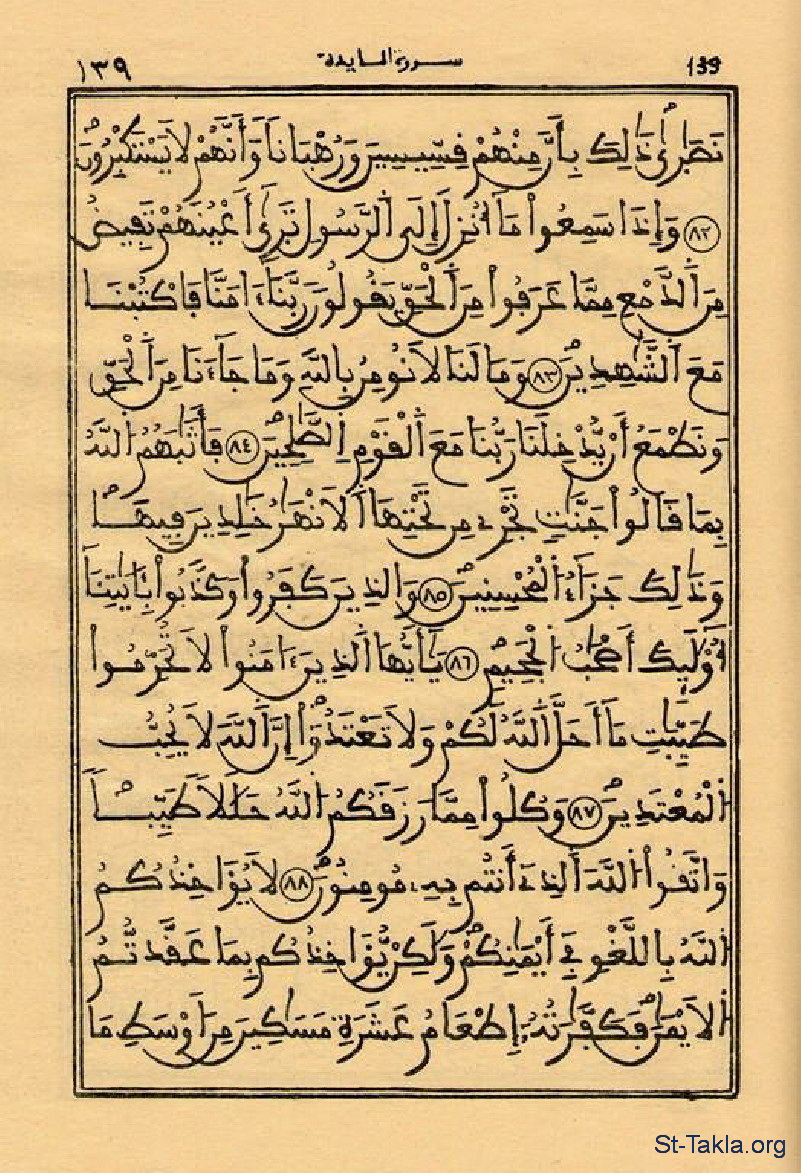 ١٣٩ سورة المايدة 139
نَصَٰرَىٰ ذَٰلِكَ بِأَنَّ مِنْهُمْ قِسِّيسِينَ وَرُهْبَاناً وَأَنَّهُمْ لَا يَسْتَكْبِرُونَ
٨٢ وَإِذَا سَمِعُواْ مَآ أُنزِلَ إِلَى ٱلرَّسُولِ تَرَىٰٓ أَعْيُنَهُمْ تَفِيضُ
مِنَ ٱلدَّمْعِ مِمَّا عَرَفُواْ مِنَ ٱلْحَقِّ يَقُولُونَ رَبَّنَآ ءَامَنَّا فَاكْتُبْنَا
مَعَ ٱلشَّٰهِدِينَ ٨٣ وَمَا لَنَا لَا نُومِنُ بِاللَّهِ وَمَا جَآءَنَا مِنَ ٱلْحَقِّ
وَنَطْمَعُ أَنْ يُّدْخِلَنَا رَبُّنَا مَعَ ٱلْقَوْمِ ٱلصَّٰلِحِينَ ٨٤ فَأَثَٰبَهُمُ ٱللَّهُ
بِمَا قَالُواْ جَنَّٰتٍ تَجْرِے مِن تَحْتِهَا ٱلْأَنْهَٰرُ خَٰلِدِينَ فِيهَا
وَذَٰلِكَ جَزَآءُ ٱلْمُحْسِنِينَ ٨٥ وَالذِينَ كَفَرُواْ وَكَذَّبُواْ بِـَٔايَٰتِنَآ
أُوْلَٰٓئِكَ أَصْحَٰبُ ٱلْجَحِيمِ ٨٦ يَٰٓأَيُّهَا ٱلذِينَ ءَامَنُواْ لَا تُحَرِّمُواْ
طَيِّبَٰتِ مَآ أَحَلَّ ٱللَّهُ لَكُمْ وَلَا تَعْتَدُوٓاْ إِنَّ ٱللَّهَ لَا يُحِبُّ
ٱلْمُعْتَدِينَ ٨٧ وَكُلُواْ مِمَّا رَزَقَكُمُ ٱللَّهُ حَلَٰلاً طَيِّباً
وَاتَّقُواْ ٱللَّهَ ٱلذِےٓ أَنتُم بِهِۦ مُومِنُونَ ٨٨ لَا يُؤَاخِذُكُمُ
ٱللَّهُ بِاللَّغْوِ فِےٓ أَيْمَٰنِكُمْ وَلَٰكِنْ يُّؤَاخِذُكُم بِمَا عَقَّدتُّمُ
ٱلْأَيْمَٰنَ فَكَفَّٰرَتُهُۥٓ إِطْعَامُ عَشَرَةِ مَسَٰكِينَ مِنْ أَوْسَطِ مَا
St-Takla.org